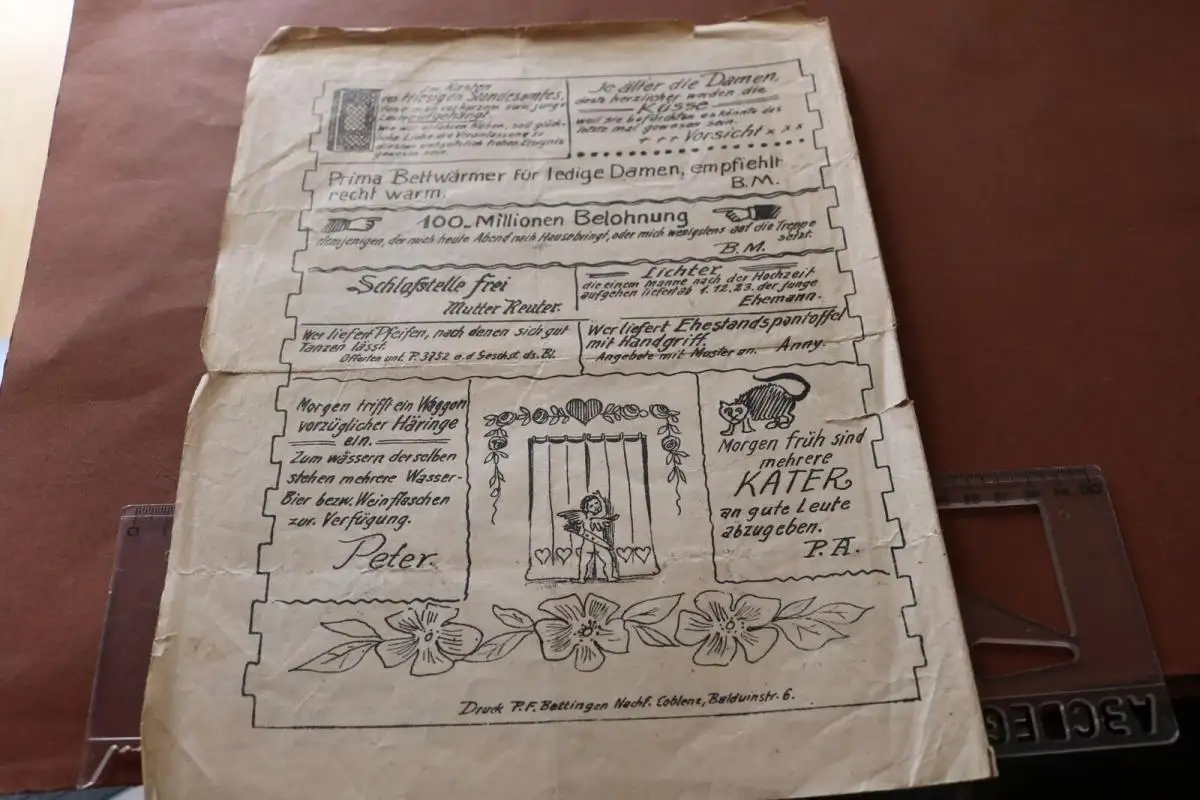 Im Kasten
des Hiesigen Standesamtes,
hat man vor kurzem zwei junge
Leute aufgehängt.
Wie wir erfahren haben, soll glück-
liche Liebe die Veranlassung zu
diesem entsetzlich frohen Ereignis
gewesen sein.
Je älter die Damen,
desto herzlicher werden die
Küsse
weil sie befürchten es könnte das
letzte mal gewesen sein.
+ + + Vorsicht x x x
Prima Bettwärmer für ledige Damen, empfiehlt
recht warm. B.M.
100.-Millionen Belohnung
demjenigen, der mich heute Abend nach Hause bringt, oder mich wenigstens auf die Treppe
setzt.
B.M.
Schlafstelle frei
Mutter Reuter.
Lichter
die einem Manne nach der Hochzeit
aufgehen liefert ab 1.12.23. der junge
Ehemann.
Wer liefert Pfeifen, nach denen sich gut
Tanzen lässt.
Offerten unt. P. 3752 a.d Geschst. ds. Bl.
Wer liefert Ehestandspantoffel
mit Handgriff.
Angebote mit Muster an. Anny.
Morgen trifft ein Waggon
vorzüglicher Häringe
ein.
Zum wässern derselben
stehen mehrere Wasser-
Bier bezw. Weinflaschen
zur. Verfügung.
Peter.
Morgen früh sind
mehrere
KATER
an gute Leute
abzugeben.
P.A.
Druck P.F. Bettingen Nachf. Coblenz, Balduinstr. 6.